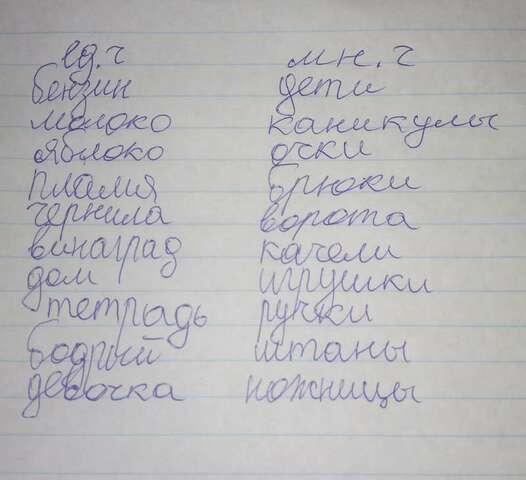 ед. ч мн. ч
бензин дети
молоко каникулы
яблоко очки
пламя брюки
чернила ворота
виноград качели
дом игрушки
тетрадь ручки
бодрый штаны
девочка ножницы